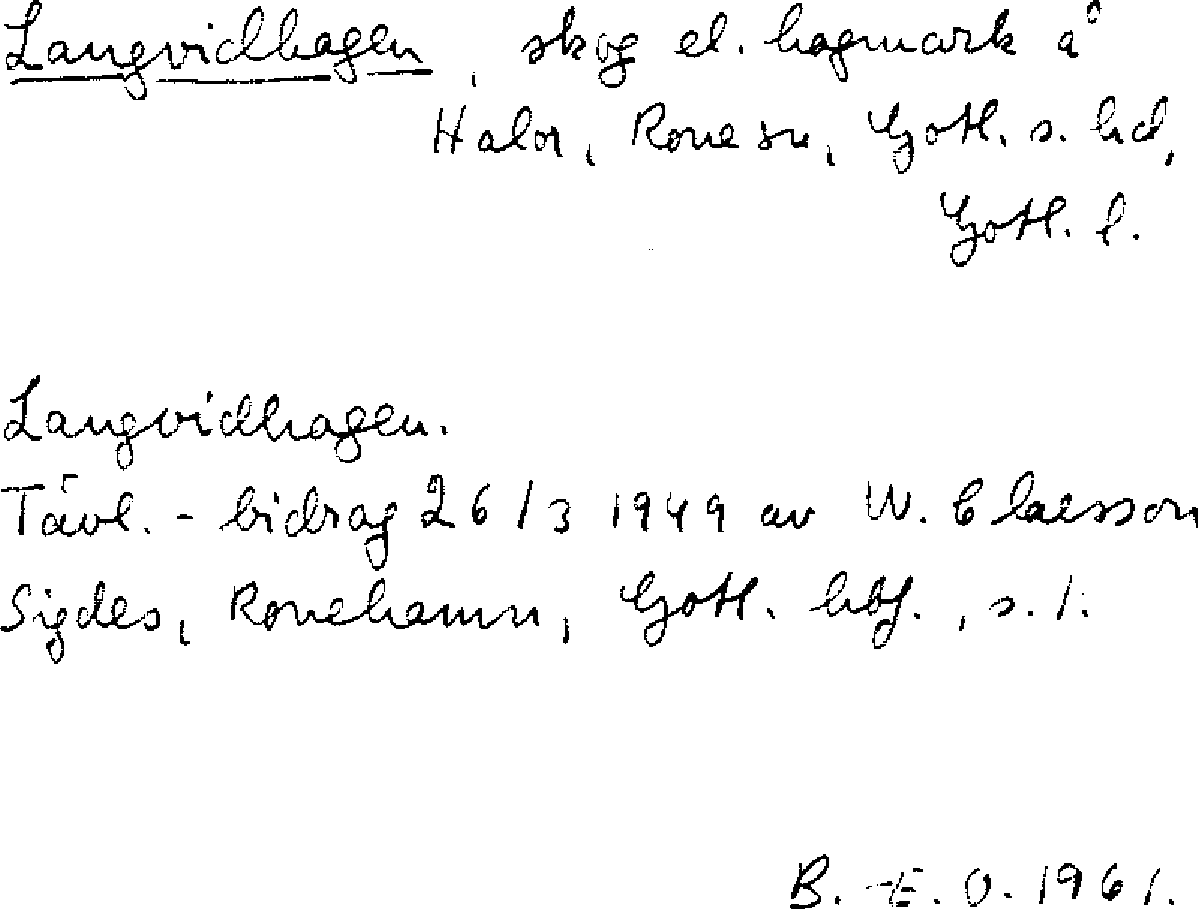 Langvidhagen, skog el. hagmark å
Halor, Rone sn, Gotl. s. hd,
Gotl. l.
Langvidhagen.
Tävl. - bidrag 26/3 1949 av W. Claesson
Sigdes, Ronehamn, Gotl. hbf., s. 1.
B. -E. O. 1961.